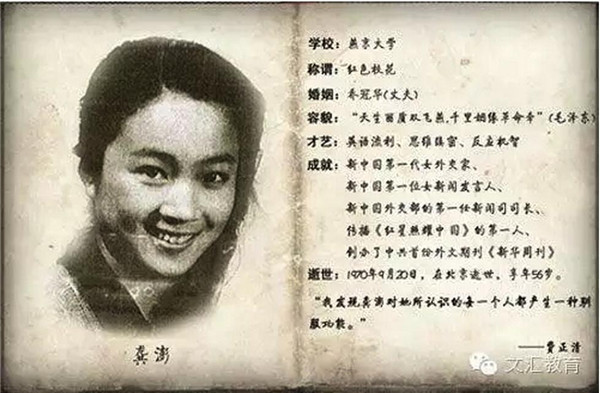 学校：燕京大学
称谓：红色校花
婚姻：乔冠华(丈夫)
容貌：“天生丽质双飞燕,千里姻缘革命牵”(毛泽东)
才艺：英语流利、思维缜密、反应机智
成就：新中国第一代女外交家、
新中国第一位女新闻发言人、
新中国外交部的第一任新闻司司长、
传播《红星照耀中国》的第一人、
创办了中共首份外文期刊《新华周刊》
逝世：1970年9月20日，在北京逝世，享年56岁。
“我发现龚澎对她所认识的每一个人都产生一种驯
服功能。”
——费正清
龚澎
文汇教育